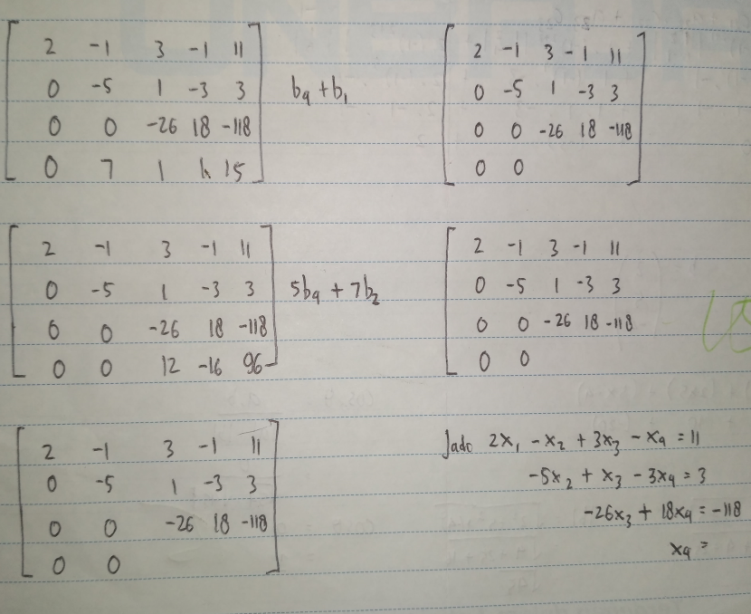 2 -1 3 -1 11
0 -5 1 -3 3
0 0 -26 18 -118
0 7 1 h 15
b4 + b1
2 -1 3 -1 11
0 -5 1 -3 3
0 0 -26 18 -118
0 0
2 -1 3 -1 11
0 -5 1 -3 3
0 0 -26 18 -118
0 0 12 -16 96
5b4 + 7b2
2 -1 3 -1 11
0 -5 1 -3 3
0 0 -26 18 -118
0 0
2 -1 3 -1 11
0 -5 1 -3 3
0 0 -26 18 -118
0 0
Jadi 2x1 - x2 + 3x3 - x4 = 11
-5x2 + x3 - 3x4 = 3
-26x3 + 18x4 = -118
x4 =